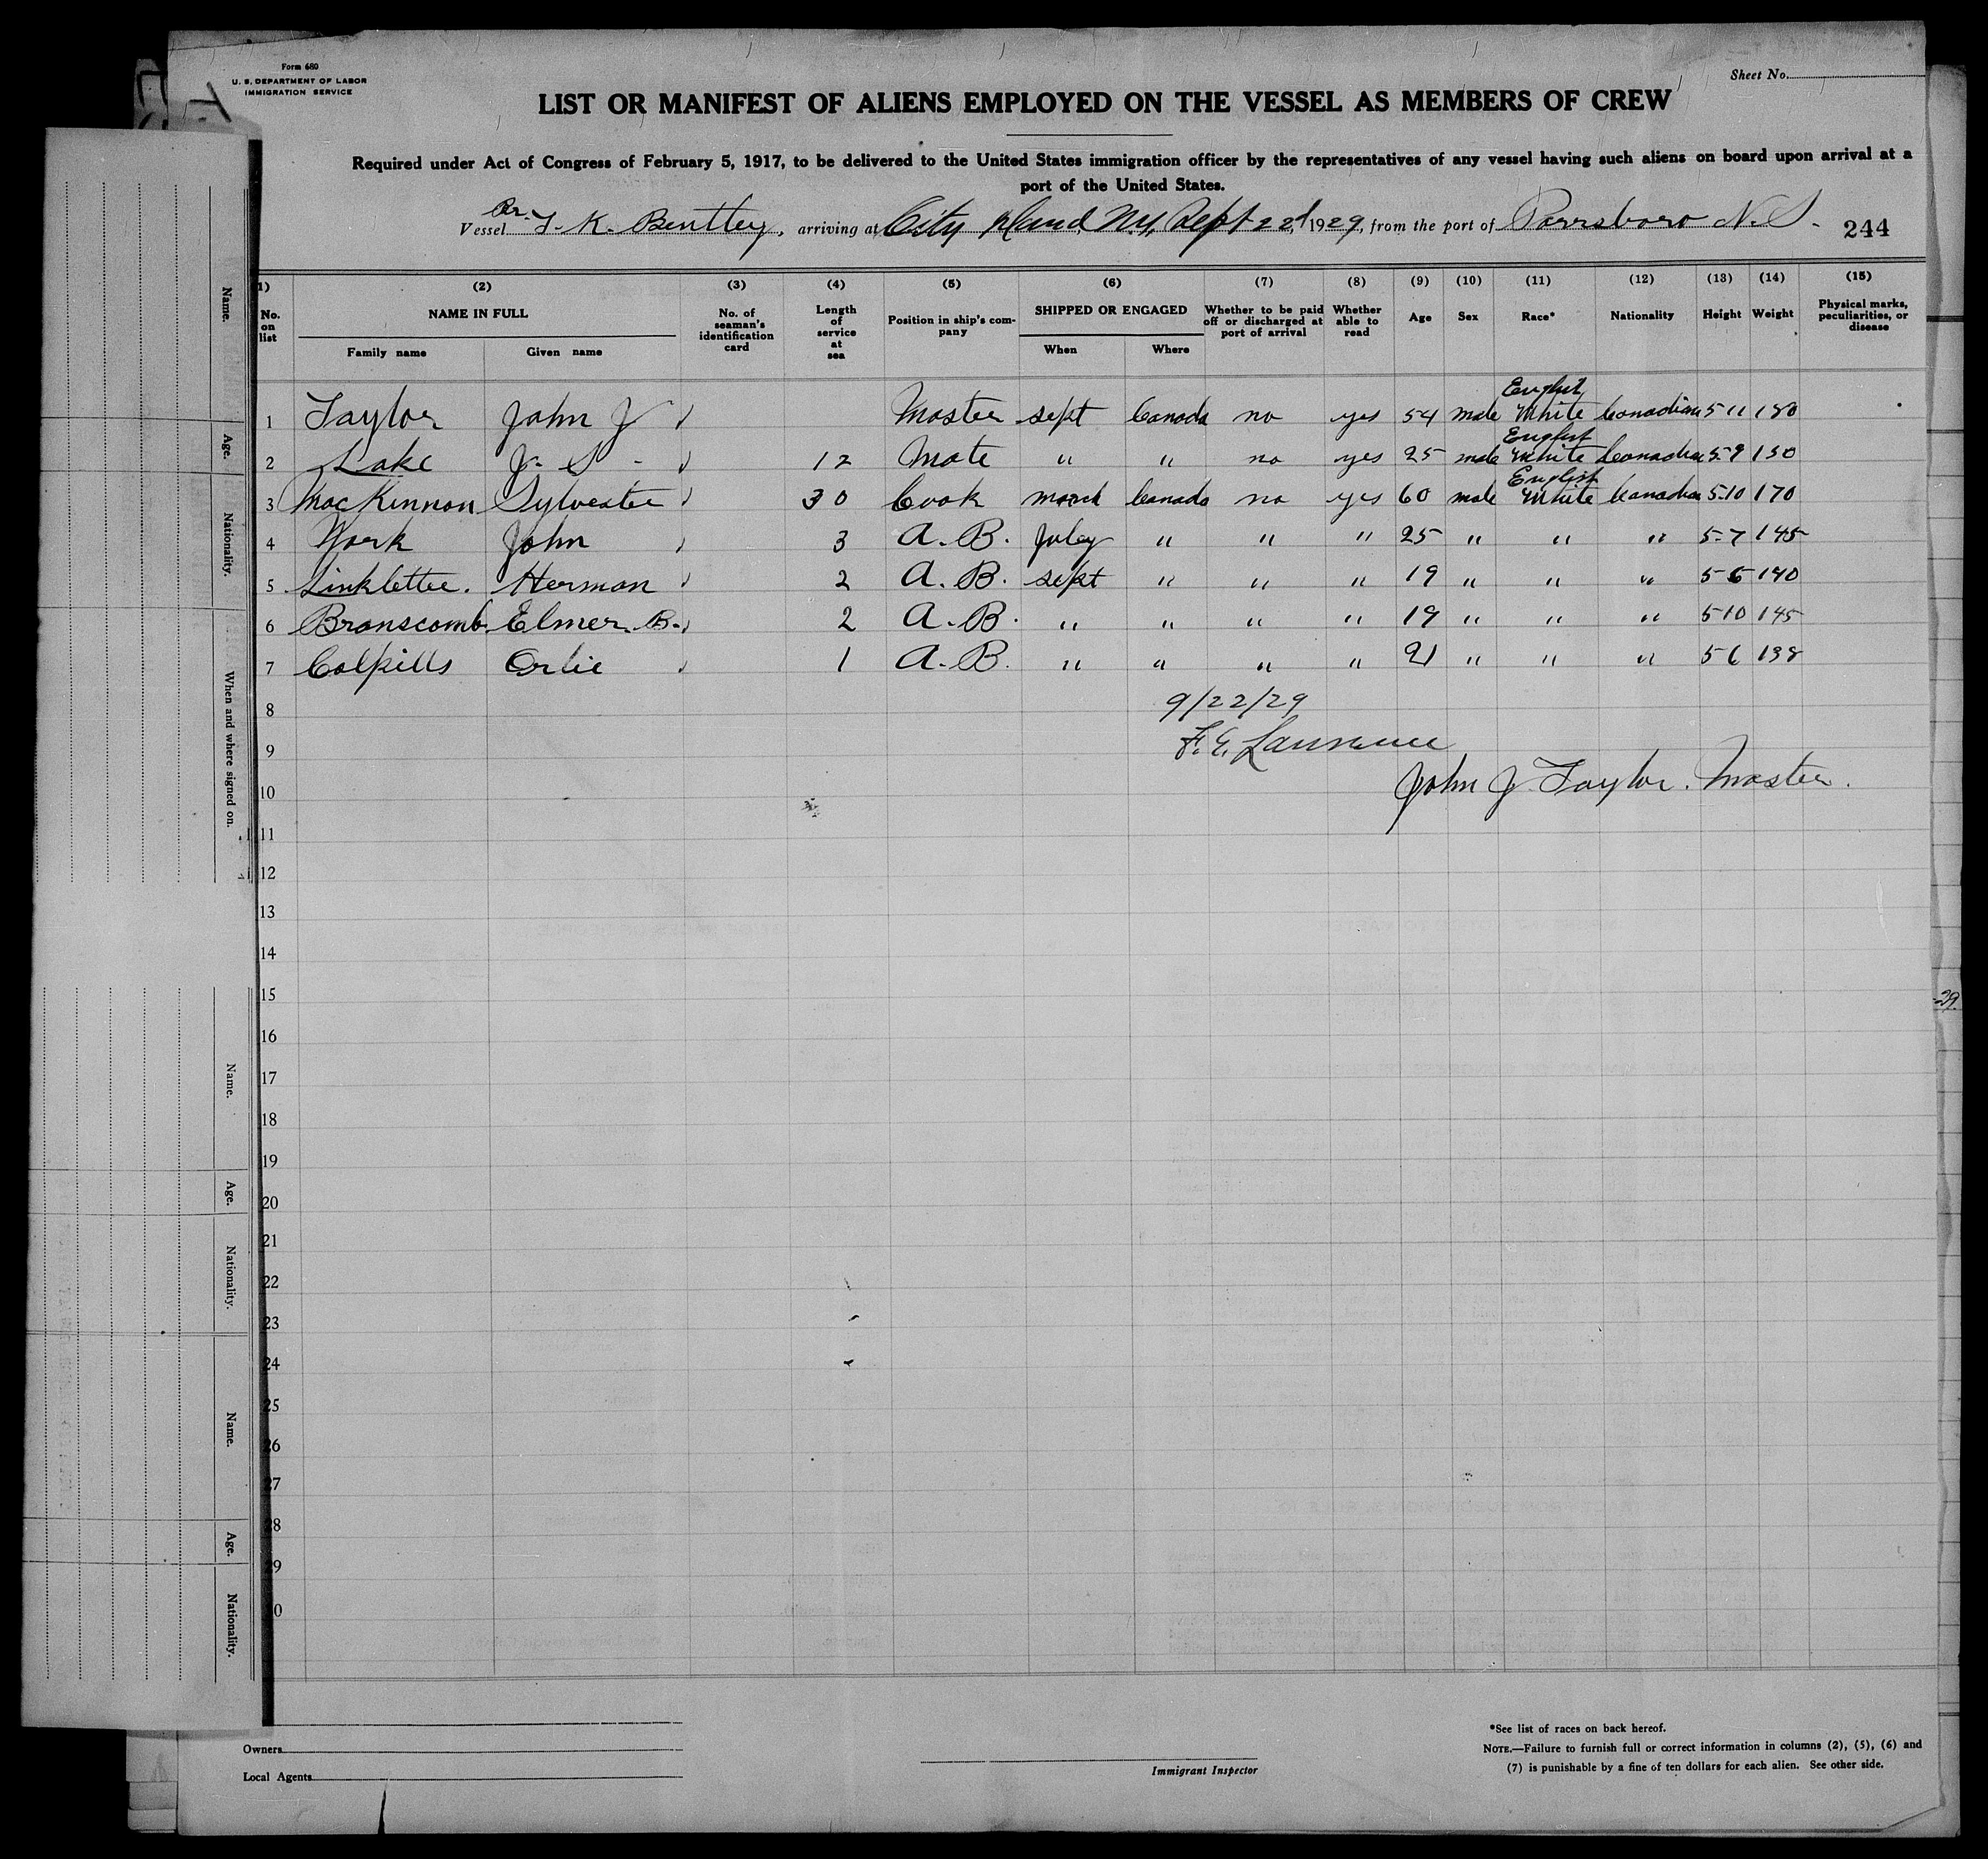 Form 680
U. S. DEPARTMENT OF LABOR
IMMIGRATION SERVICE
Sheet No.
LIST OR MANIFEST OF ALIENS EMPLOYED ON THE VESSEL AS MEMBERS OF CREW
Required under Act of Congress of February 5, 1917, to be delivered to the United States immigration officer by the representatives of any vessel having such aliens on board upon arrival at a
port of the United States.
Vessel T. K. Bentley, arriving at City Island, N.Y. Sept 22d, 1929, from the port of Parrsboro N.S. 244
(1) (2) (3) (4) (5) (6) (7) (8) (9) (10) (11) (12) (13) (14) (15)
No. on list NAME IN FULL Family name Given name No. of seaman's identification card Length of service at sea Position in ship's company SHIPPED OR ENGAGED When Where Whether to be paid off or discharged at port of arrival Whether able to read Age Sex Race* Nationality Height Weight Physical marks, peculiarities, or disease
1 Taylor John J Master sept Canada no yes 54 male English White Canadian 5 11 180
2 Lake J. S. 12 Mate " " no yes 25 male English White Canadian 5-9 150
3 MacKinnon Sylvester 30 Cook march Canada no yes 60 male English White Canadian 5-10 170
4 York John 3 A. B. July " " " 25 " " " 5-7 145
5 Linkletter. Herman 2 A. B. sept " " " 19 " " " 5 6 140
6 Branscomb Elmer B. 2 A. B. " " " " 19 " " " 5-10 145
7 Colpitts Orlie 1 A. B. " " " " 21 " " " 5 6 138
8 9/22/29
9 F. E. Lawrence
10 John J Taylor. Master.
11
12
13
14
15
16
17
18
19
20
21
22
23
24
25
26
27
28
29
30
Name.
Age.
Nationality.
When and where signed on.
Name.
Age.
Nationality.
Name.
Age.
Nationality.
29.
Owners
Local Agents
Immigrant Inspector
*See list of races on back hereof.
NOTE.—Failure to furnish full or correct information in columns (2), (5), (6) and
(7) is punishable by a fine of ten dollars for each alien. See other side.